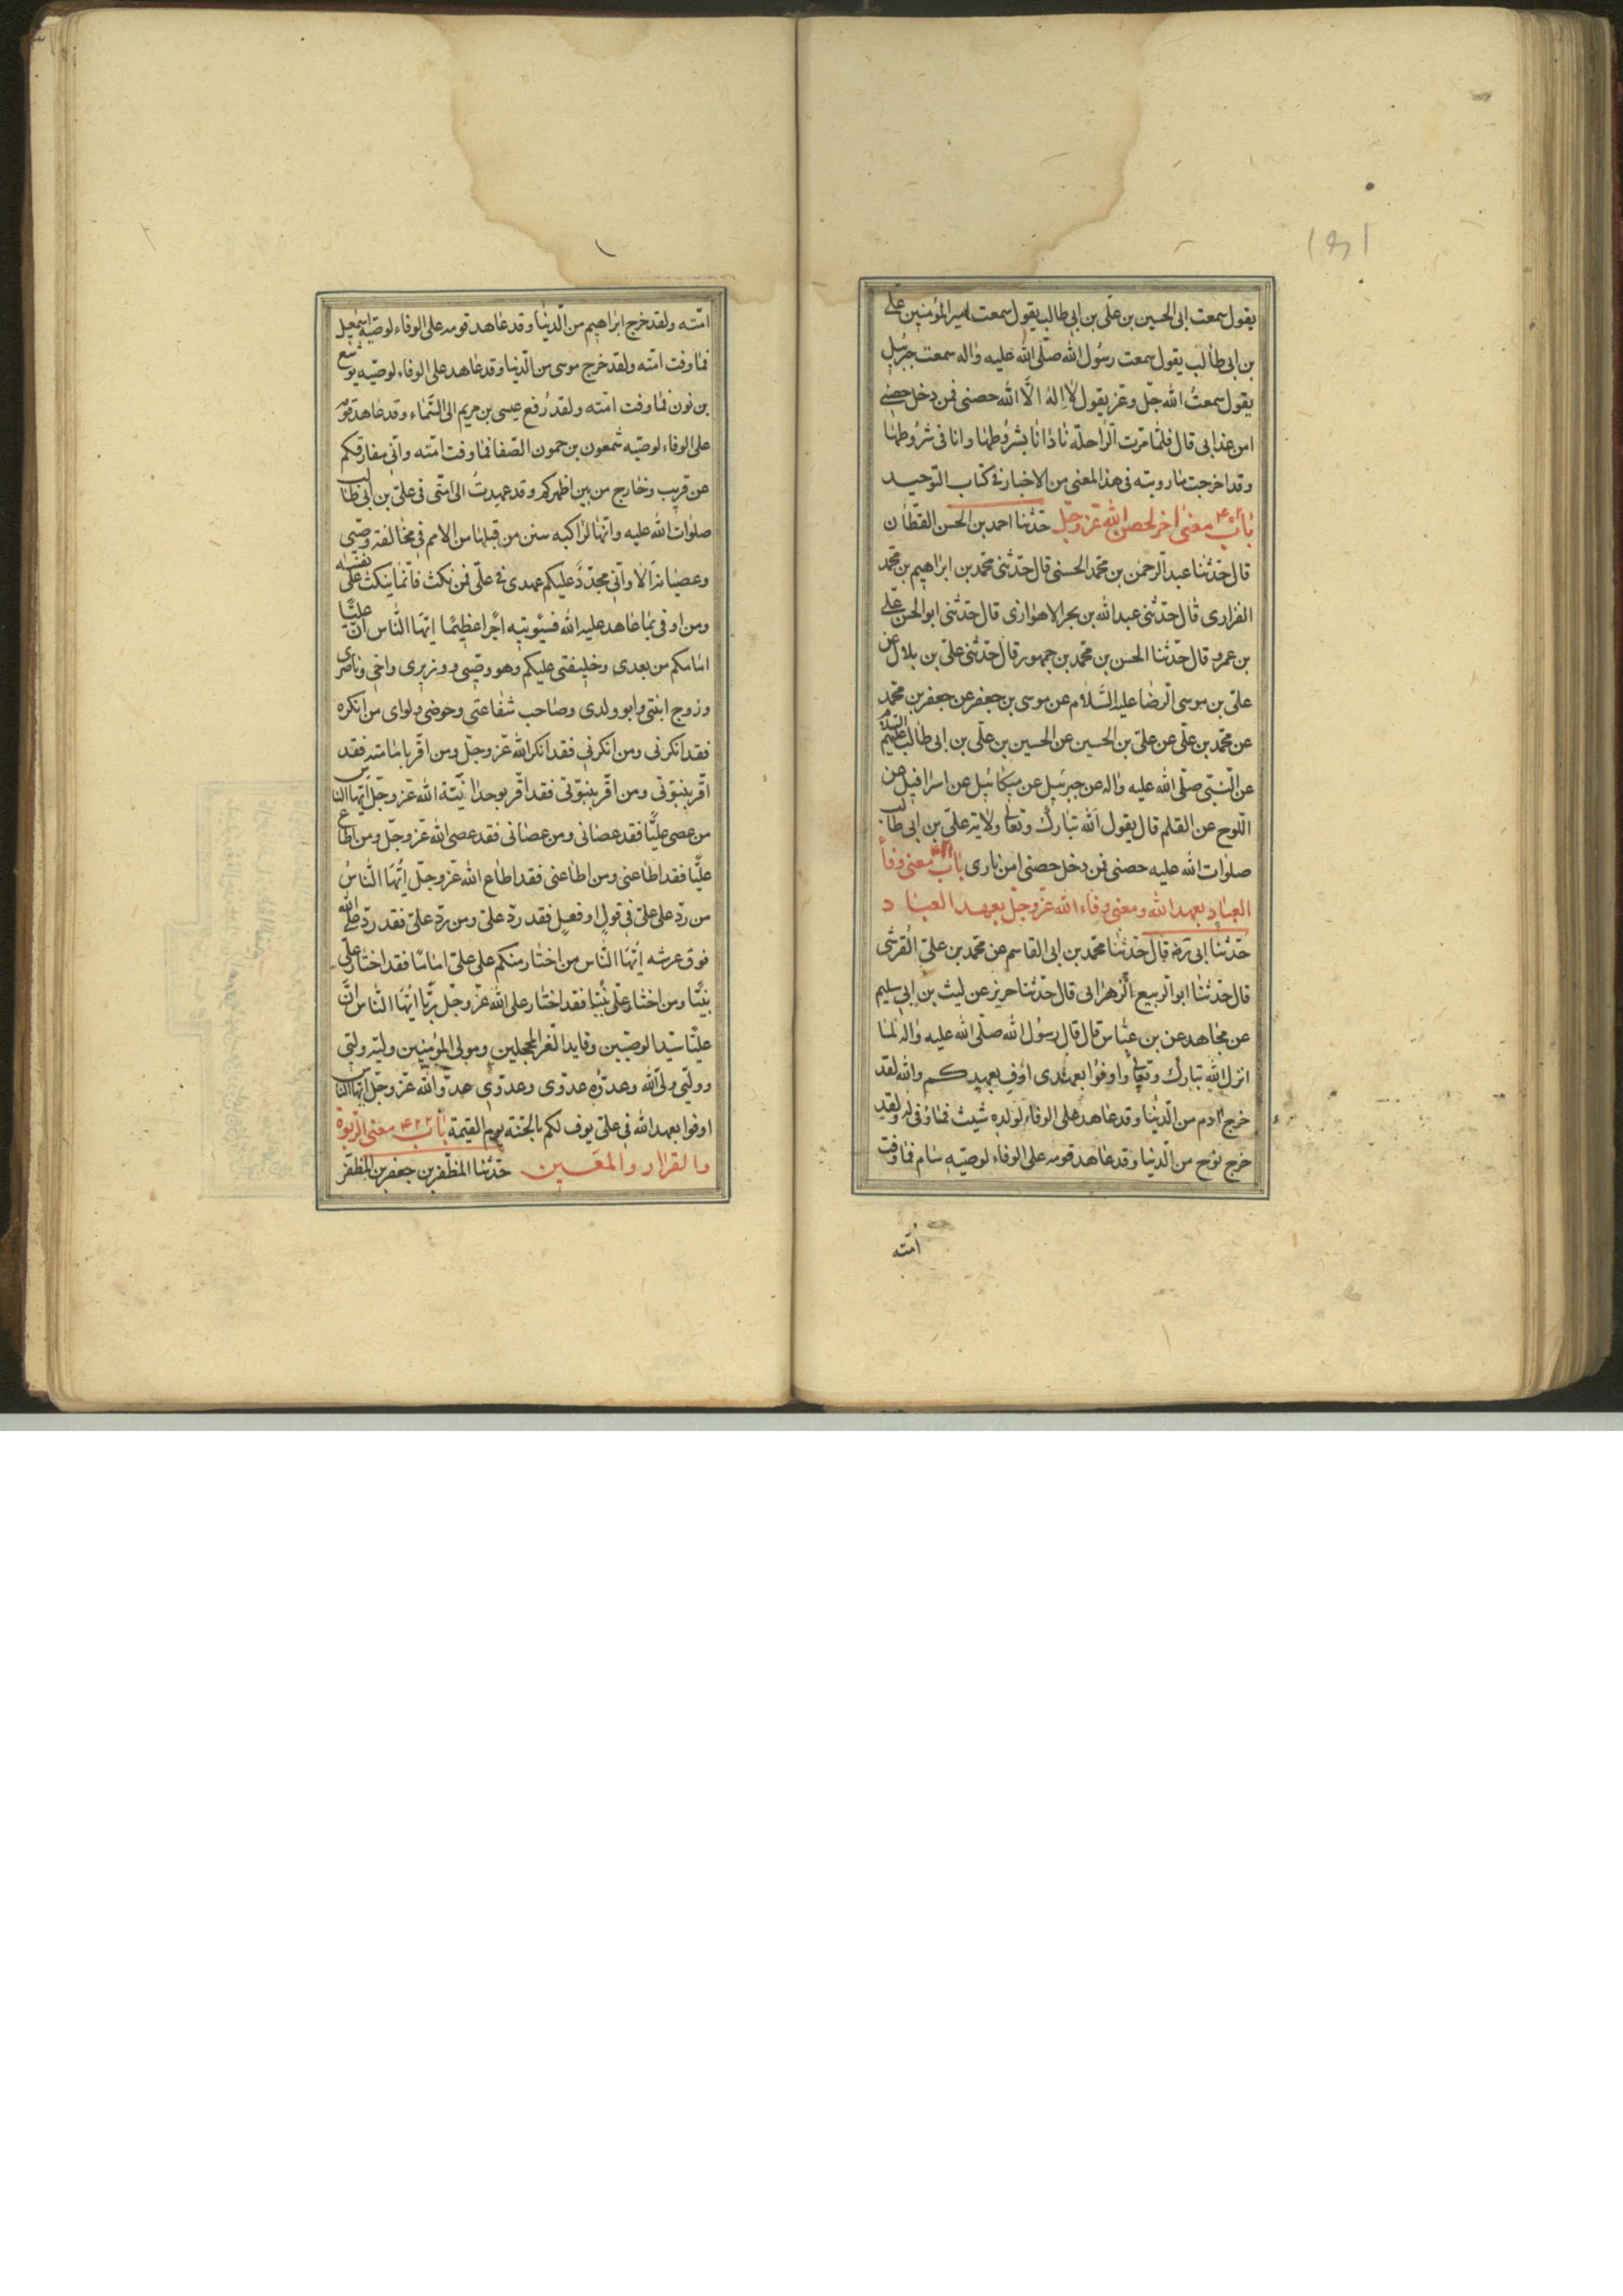 يقول سمعت ابى الحسين بن على بن ابى طالب يقول سمعت امير المؤمنين على
بن ابى طالب يقول سمعت رسول الله صلّى الله عليه واله سمعت جبرئيل
يقول سمعت الله جلّ وعز يقول لا اله الّا الله حصنى فمن دخل حصنى
امن عذابى قال فلمّا مرت الراحلة نادانا بشروطها وانا فى شروطها
وقد اخرجت ما رويته فى هذا المعنى من الاخبار فى كتاب التوحيد
باب معنى اخر لحصن الله عزّ وجلّ حدّثنا احمد بن الحسن القطّان
قال حدّثنا عبد الرحمن بن محمّد الحسنى قال حدّثنى محمّد بن ابراهيم بن محمّد
الفزارى قال حدّثنى عبد الله بن بحر الاهوازى قال حدّثنى ابو الحسن على
بن عمرو قال حدّثنا الحسن بن محمّد بن جمهور قال حدّثنى على بن بلال عن
علىّ بن موسى الرضا عليه السّلام عن موسى بن جعفر عن جعفر بن محمّد
عن محمّد بن علىّ عن علىّ بن الحسين عن الحسين بن علىّ بن ابى طالب عليهم السلام
عن النّبىّ صلّى الله عليه واله عن جبرئيل عن ميكائيل عن اسرافيل عن
اللوح عن القلم قال يقول الله تبارك وتعالى ولاية علىّ بن ابى طالب
صلوات الله عليه حصنى فمن دخل حصنى امن نارى باب ۴۲۱ معنى وفاء
العباد بعهد الله ومعنى وفاء الله عزّ وجلّ بعهد العباد
حدّثنا ابى رضه قال حدّثنا محمّد بن ابى القاسم عن محمّد بن علىّ القرشى
قال حدّثنا ابو الربيع الزهرانى قال حدّثنا حريز عن ليث بن ابى سليم
عن مجاهد عن بن عبّاس قال قال رسول الله صلّى الله عليه واله لمّا
انزل الله تبارك وتعالى واوفوا بعهدى اوف بعهدكم والله لقد
خرج ادم من الدّنيا وقد عاهد على الوفاء لولده شيث فما وفى له ولقد
خرج نوح من الدّنيا وقد عاهد قومه على الوفاء لوصيّه سام فما وفت
امّته
امّته ولقد خرج ابراهيم من الدّنيا وقد عاهد قومه على الوفاء لوصيّه اسمعيل
فما وفت امّته ولقد خرج موسى من الدّنيا وقد عاهد على الوفاء لوصيّه يوشع
بن نون فما وفت امّته ولقد رُفع عيسى بن مريم الى السّماء وقد عاهد قومه
على الوفاء لوصيّه شمعون بن حمون الصّفا فما وفت امّته وانّى مفارقكم
عن قريب وخارج من بين اظهركم وقد عهدت الى امّتى فى علىّ بن ابى طالب
صلوات الله عليه وانّها لراكبة سنن من قبلها من الامم فى مخالفة وصيّى
وعصيانه الا وانّى مجدّد عليكم عهدى فى علىّ فمن نكث فانّما ينكث على نفسه
ومن اوفى بما عاهد عليه الله فسيؤتيه اجرًا عظيمًا ايّها النّاس انّ عليًّا
امامكم من بعدى وخليفتى عليكم وهو وصيّى ووزيرى واخى وناصرى
وزوج ابنتى وابو ولدى وصاحب شفاعتى وحوضى ولواى من انكره
فقد انكرنى ومن انكرنى فقد انكر الله عزّ وجلّ ومن اقرّ بامامته فقد
اقرّ بنبوّتى ومن اقرّ بنبوّتى فقد اقرّ بوحدانيّة الله عزّ وجلّ ايّها الناس
من عصى عليًّا فقد عصانى ومن عصانى فقد عصى الله عزّ وجلّ ومن اطاع
عليًّا فقد اطاعنى ومن اطاعنى فقد اطاع الله عزّ وجلّ ايّها النّاسُ
من ردّ على علىّ فى قول او فعل فقد ردّ علىّ ومن ردّ علىّ فقد ردّ على الله
فوق عرشه ايّها النّاس من اختار منكم على علىّ امامًا فقد اختار علىّ
نبيًّا ومن اختار علىّ نبيًّا فقد اختار على الله عزّ وجلّ ربًّا ايّها النّاس انّ
عليًّا سيّد الوصيّين وقايد الغرّ المحجلين ومولى المؤمنين وليّه وليّى
ووليّى ولىّ الله وعدوّه عدوّى وعدوّى عدوّ الله عزّ وجلّ ايّها الناس
اوفوا بعهد الله فى علىّ يوف لكم بالجنّة يوم القيمة باب ۴۲۲ معنى الرّبوة
والقرار والمعين حدّثنا المظفّر بن جعفر بن المظفّر